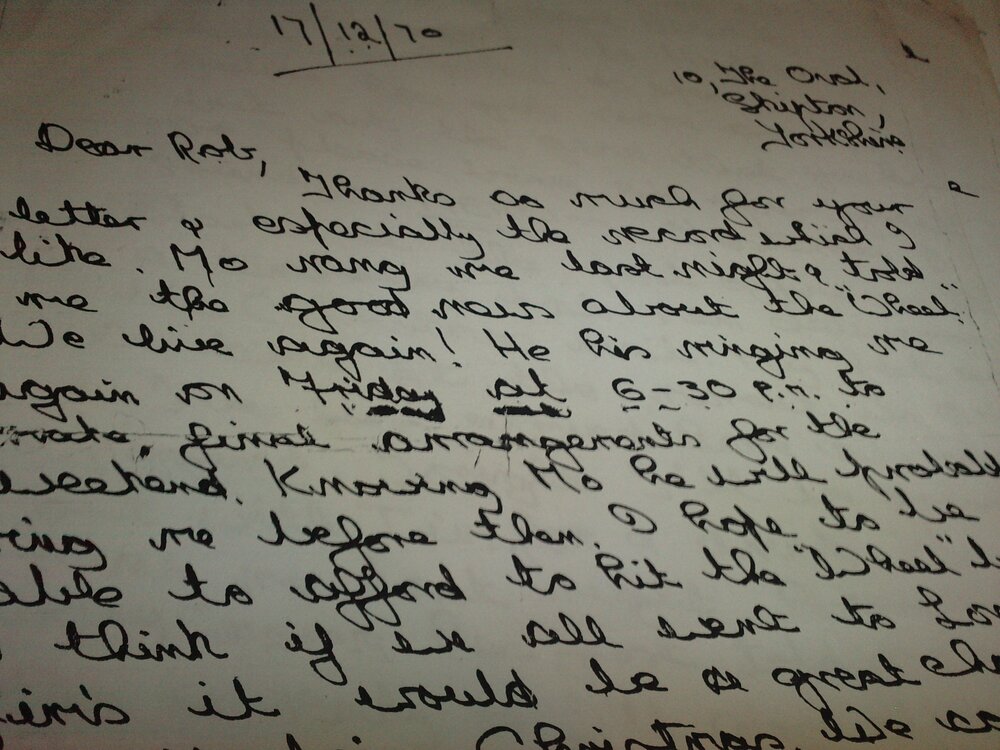 17/12/70
10, The Oval,
Skipton,
Yorkshire
Dear Rob,
Thanks so much for your
letter & especially the record which I
like. Mo rang me last night & told
me the good news about the "Wheel".
We live again! He his ringing me
again on Friday at 6-30 p.m. to
make final arrangements for the
weekend. Knowing Mo he will probabl
ring me before then. I hope to be
able to afford to hit the "Wheel"
think if we all went to
it would be a great
Christmas We